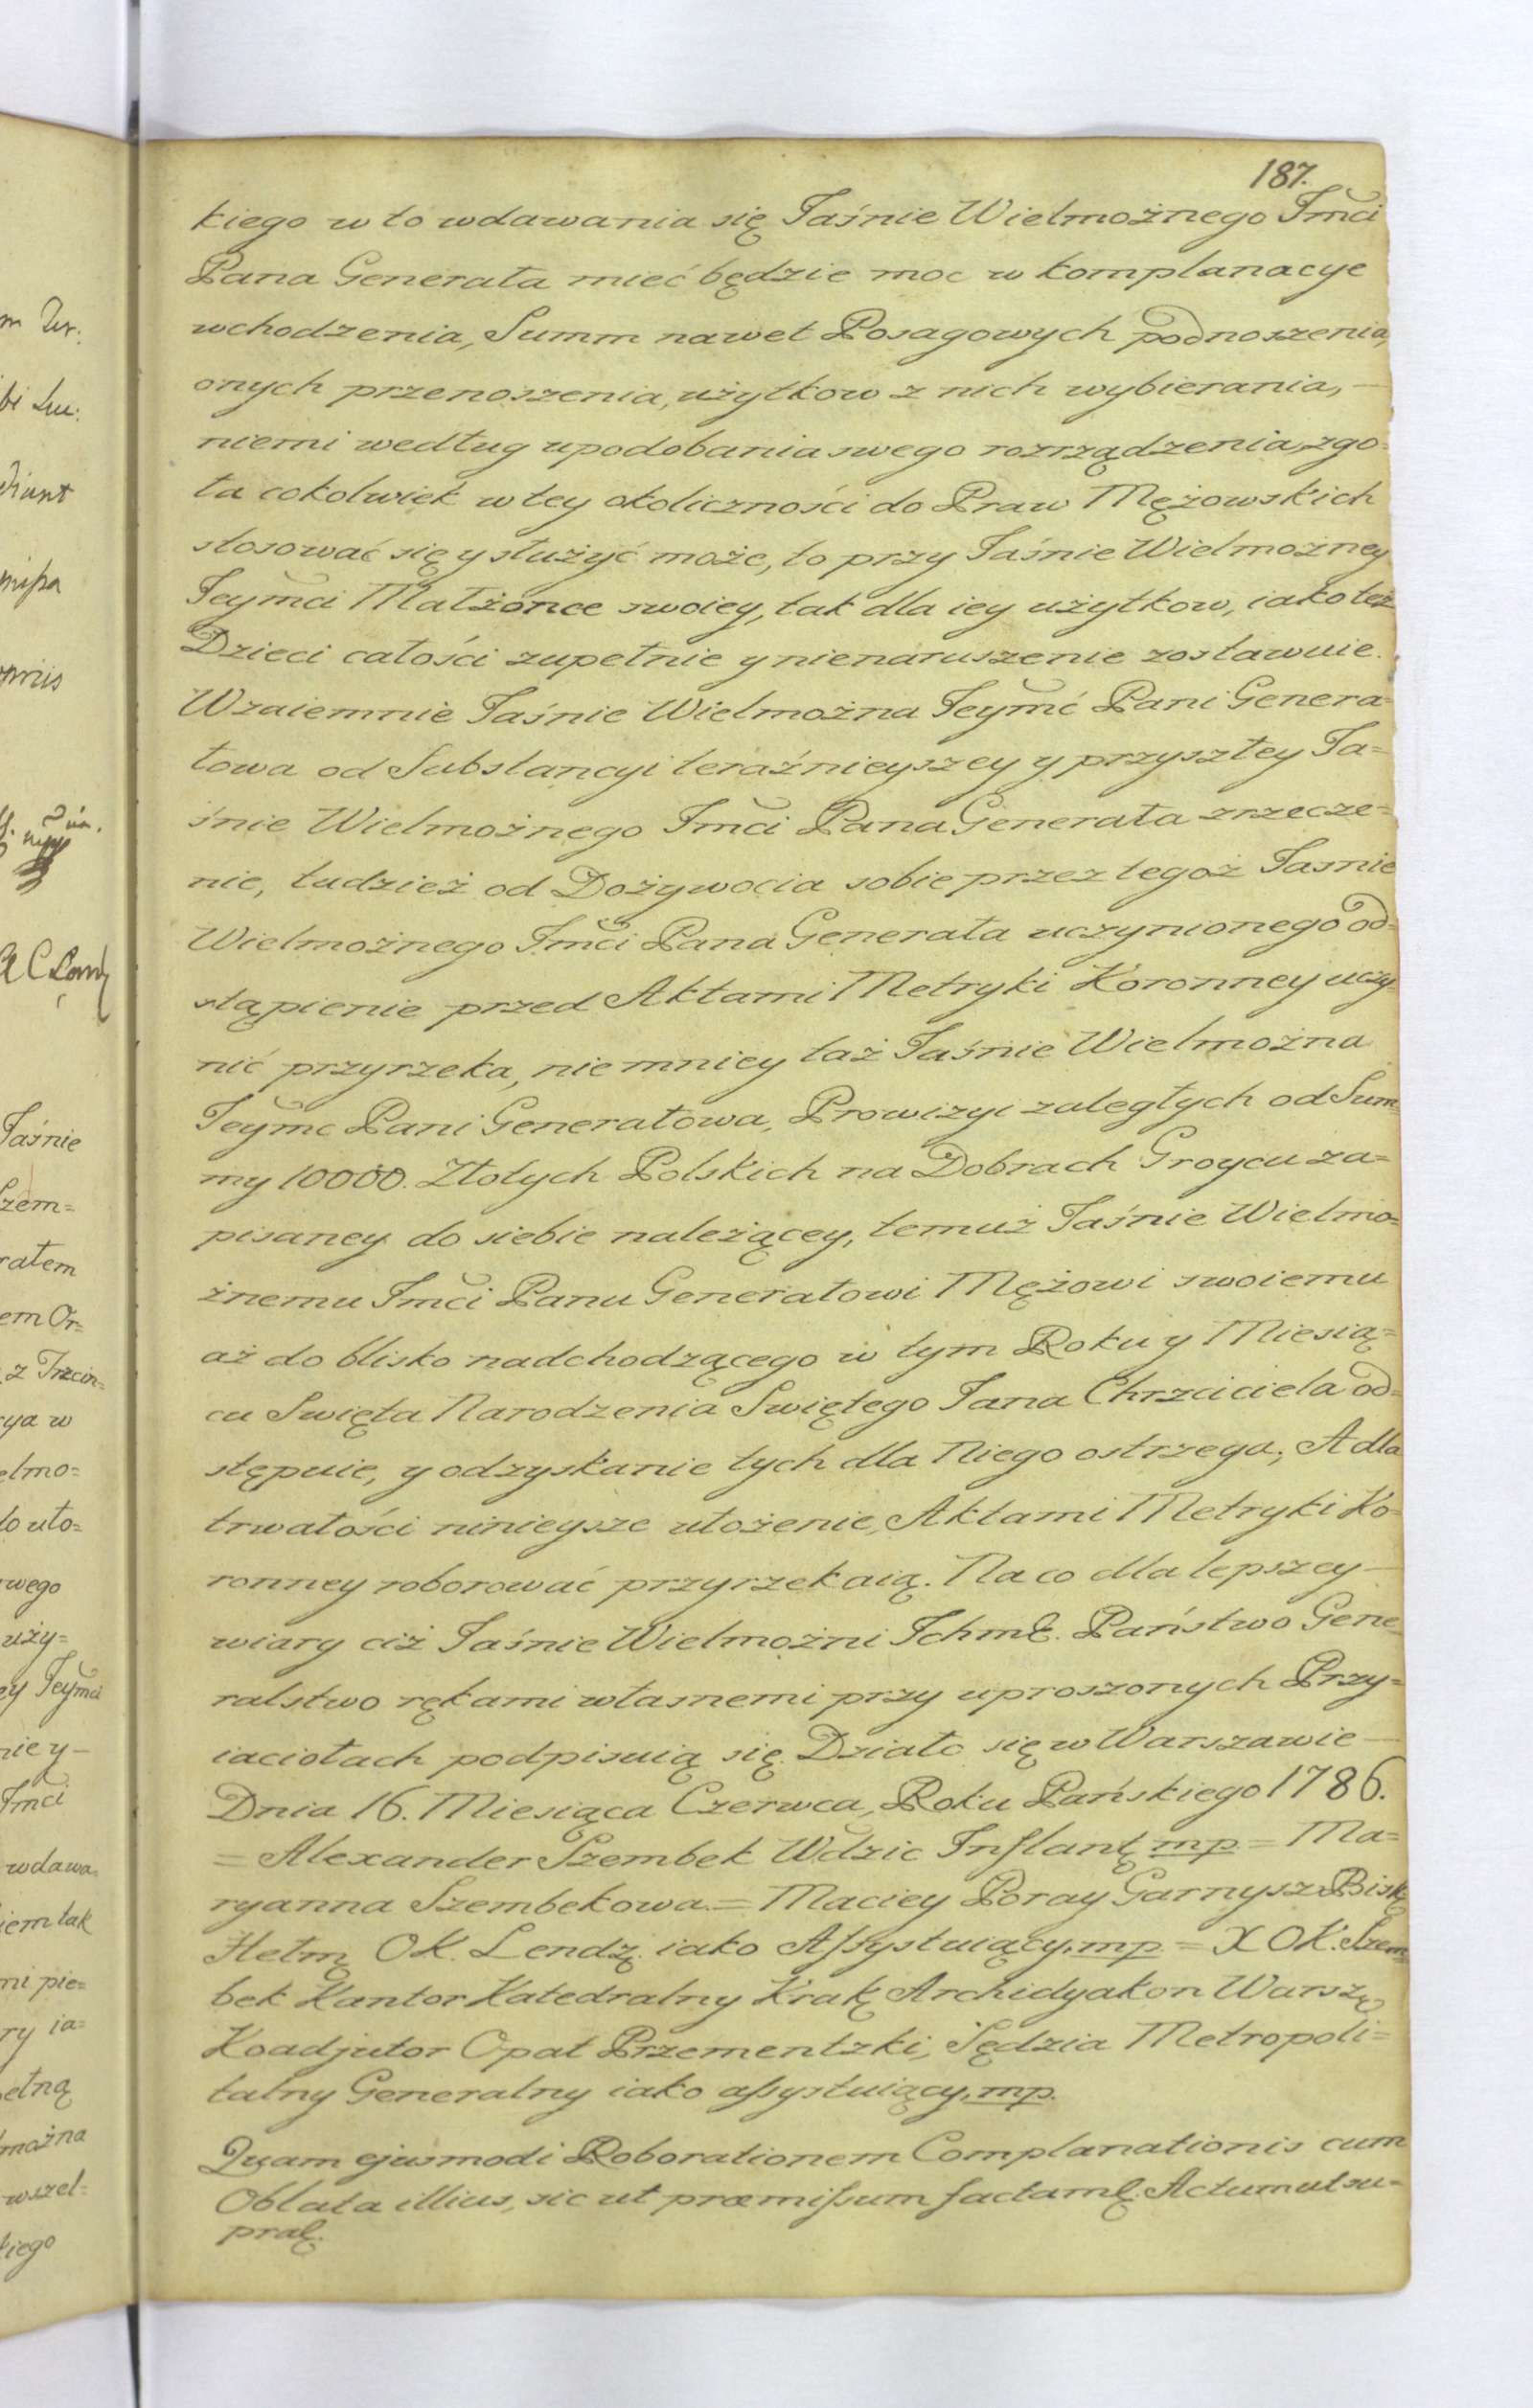 187.
kiego w to wdawania się Jaśnie Wielmożnego Jmci
Pana Generała mieć będzie moc w komplanacye
wchodzenia, Summ nawet Posagowych podnoszenia,
onych przenoszenia, użytkow z nich wybierania, —
niemi według upodobania swego rozrządzenia, zgo-
ła cokolwiek w tey okoliczności do Praw Mężowskich
stosować się y służyć może, to przy Jaśnie Wielmożney
Jeymci Małżonce swoiey, tak dla iey użytkow, iako też
Dzieci całości zupełnie y nienaruszenie zostawuie.
Wzaiemnie Jaśnie Wielmożna Jeymć Pani Genera-
łowa od Substancyi teraźnieyszey y przyszłey Ja=
śnie Wielmożnego Jmci Pana Generała zrzecze=
nie, tudzież od Dożywocia sobie przez tegoż Jasnie
Wielmożnego Jmci Pana Generała uczynionego od=
stąpienie przed Aktami Metryki Koronney uczy=
nić przyrzeka, niemniey taż Jaśnie Wielmożna
Jeymc Pani Generałowa, Prowizyi zaległych od Sum
my 10000. Złotych Polskich na Dobrach Groycu za=
pisaney do siebie należącey, temuż Jaśnie Wielmo=
żnemu Jmci Panu Generałowi Mężowi swoiemu
aż do blisko nadchodzącego w tym Roku y Miesią=
cu Swięta Narodzenia Swiętego Jana Chrzciciela od=
stępuie, y odzyskanie tych dla Niego ostrzega; A dla
trwałości ninieysze ułożenie, Aktami Metryki Ko=
ronney roborować przyrzekaią. Na co dla lepszey —
wiary ciż Jaśnie Wielmożni Ichmć. Państwo Gene=
ralstwo rękami własnemi przy uproszonych Przy=
iaciołach podpisuią się. Działo się w Warszawie —
Dnia 16. Miesiąca Czerwca, Roku Pańskiego 1786.
= Alexander Szembek Wdzic Inflant mp = Ma=
ryanna Szembekowa = Maciey Poray Garnysz Bisk
Hełm OK. Lendz. iako Assystuiący. mp. = X OK. Szem
bek Kantor Katedralny Krak Archidyakon Warsz
Koadjutor Opat Przementzki, Sędzia Metropoli=
talny Generalny iako assystuiący. mp.
Quam ejusmodi Roborationem Complanationis cum
Oblata illius, sic ut præmissum factam. Actum ut su=
pra.